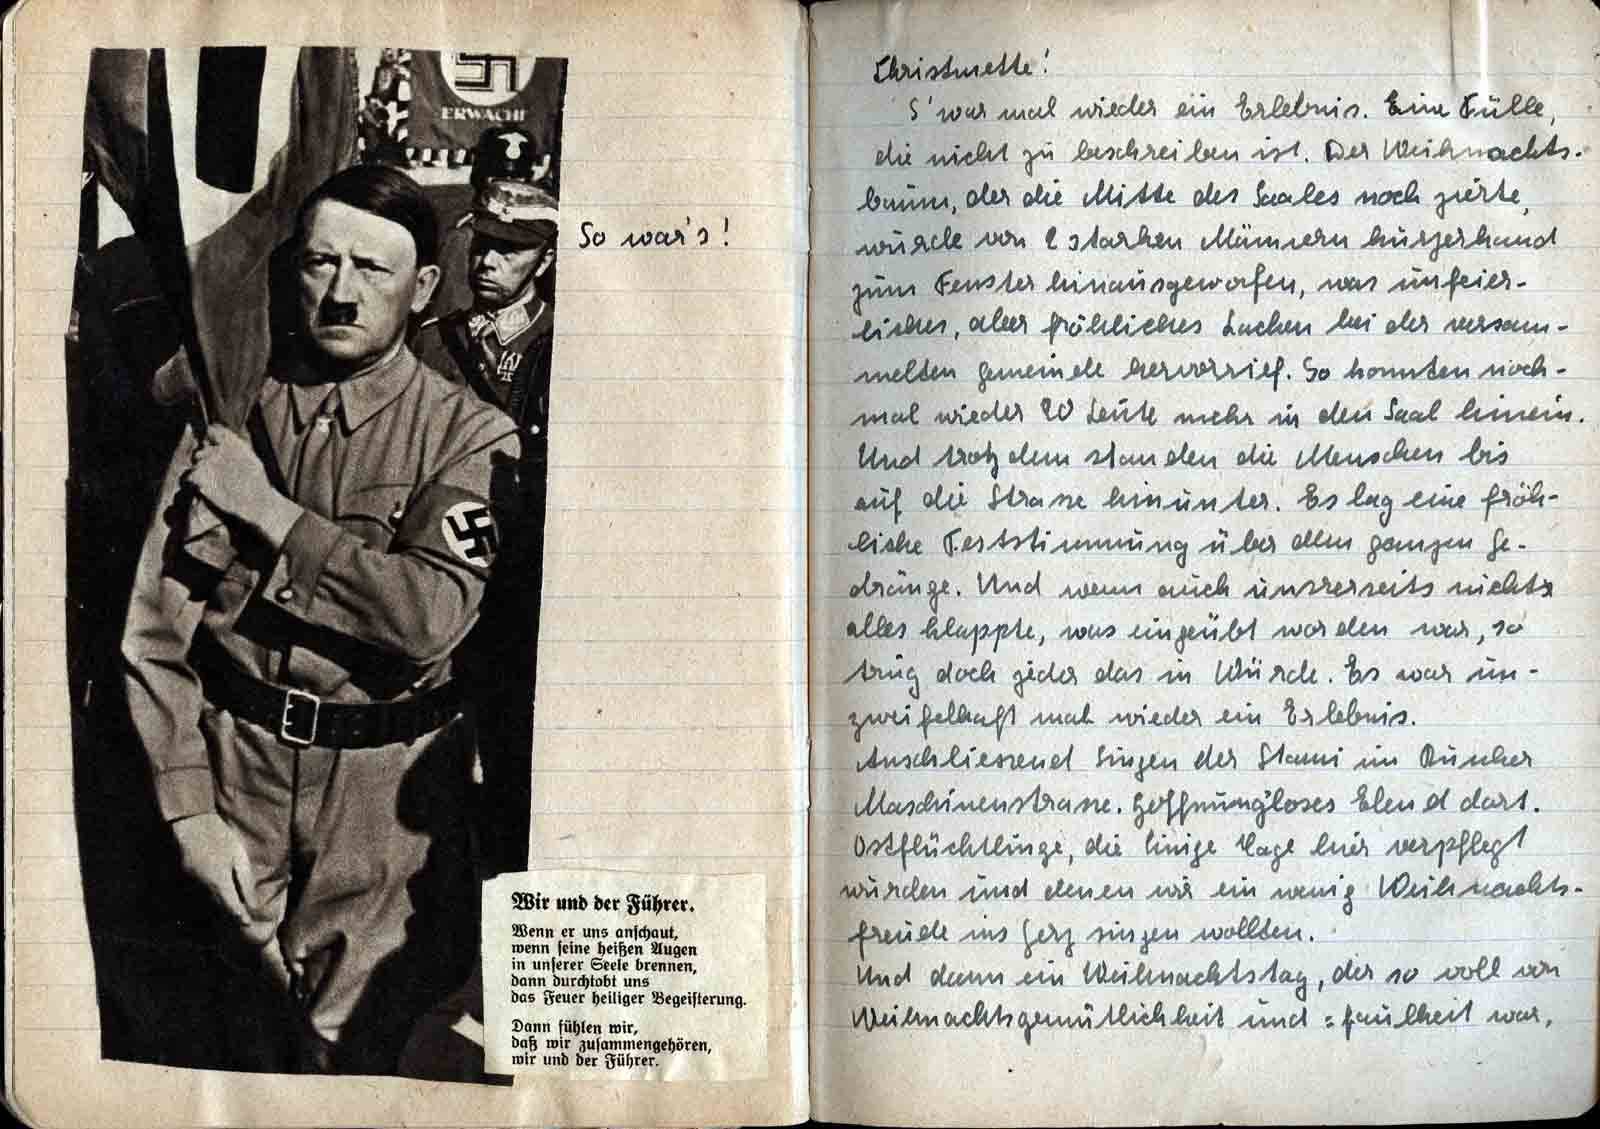 ERWACHE
So war's!
Wir und der Führer.
Wenn er uns anschaut,
wenn seine heißen Augen
in unserer Seele brennen,
dann durchtobt uns
das Feuer heiliger Begeisterung.
Dann fühlen wir,
daß wir zusammengehören,
wir und der Führer.
Christmette!
S'war mal wieder ein Erlebnis. Eine Fülle,
die nicht zu beschreiben ist. Der Weihnachts-
baum, der die Mitte des Saales noch zierte,
wurde von 2 starken Männern kurzerhand
zum Fenster hinausgeworfen, was unfeier-
liches, aber fröhliches Lachen bei der versam-
melten Gemeinde hervorrief. So konnten noch-
mal wieder 20 Leute mehr in den Saal hinein.
Und trotzdem standen die Menschen bis
auf die Strasse hinunter. Es lag eine fröh-
liche Feststimmung über dem ganzen Ge-
dränge. Und wenn auch unsrerseits nicht
alles klappte, was eingeübt worden war, so
trug doch jeder das in Würde. Es war un-
zweifelhaft mal wieder ein Erlebnis.
Anschliessend Singen der Stami im Bunker
Maschinenstrasse. Hoffnungsloses Elend dort.
Ostflüchtlinge, die einige Tage hier verpflegt
wurden und denen wir ein wenig Weihnachts-
freude ins Herz singen wollten.
Und dann ein Weihnachtstag, der so voll von
Weihnachtsgemütlichkeit und =faulheit war,